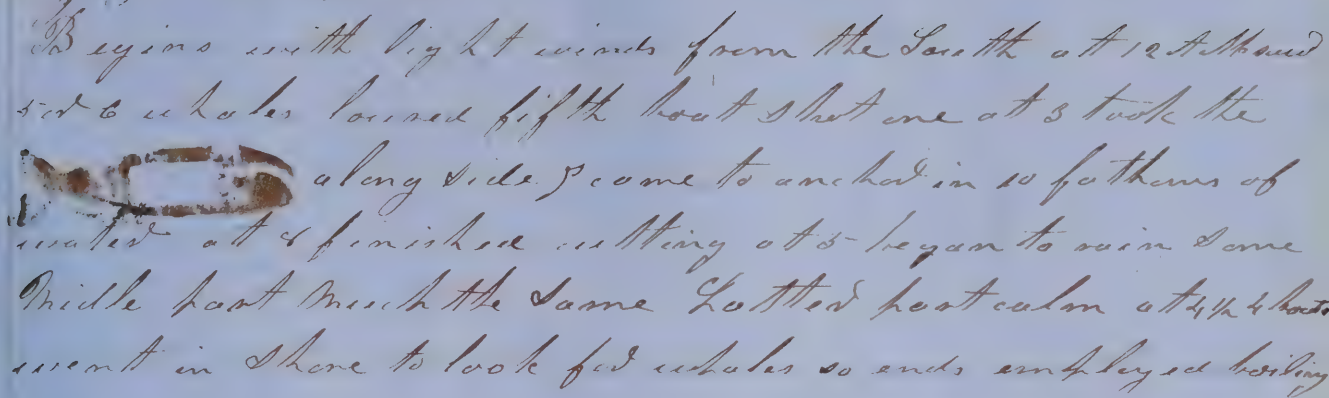 Begins with light winds from the South at 12 AM saw
5 or 6 whales loured fifth boat shot one at 3 took the
along side & come to anchor in 10 fathoms of
water at 8 finished cutting at 5 began to rain some
Midle part Much the Same Latter part calm at 4 1/2 4 boats
went in Shore to look for whales so ends employed boiling